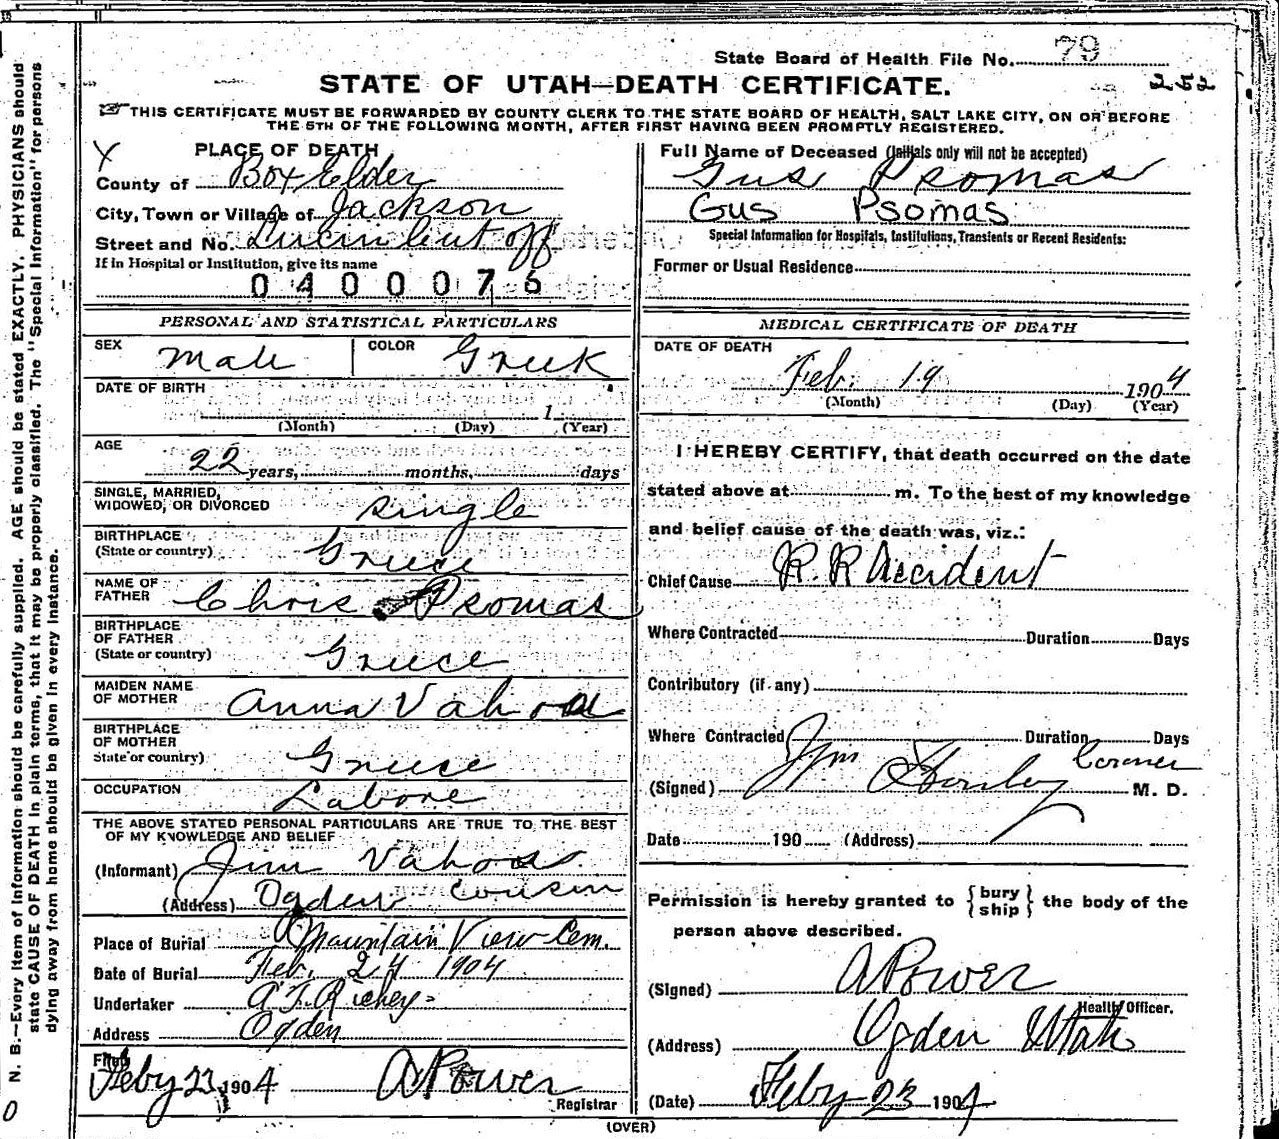 State Board of Health File No. 79
STATE OF UTAH—DEATH CERTIFICATE.
252
THIS CERTIFICATE MUST BE FORWARDED BY COUNTY CLERK TO THE STATE BOARD OF HEALTH, SALT LAKE CITY, ON OR BEFORE
THE 5TH OF THE FOLLOWING MONTH, AFTER FIRST HAVING BEEN PROMPTLY REGISTERED.
X
PLACE OF DEATH
County of Box Elder
City, Town or Village of Jackson
Street and No. Lucin Cut off
If in Hospital or Institution, give its name
0400076
PERSONAL AND STATISTICAL PARTICULARS
SEX Male COLOR Greek
DATE OF BIRTH
1
(Month) (Day) (Year)
AGE
22 years, months, days
SINGLE, MARRIED,
WIDOWED, OR DIVORCED single
BIRTHPLACE
(State or country) Greece
NAME OF
FATHER Chris Psomas
BIRTHPLACE
OF FATHER
(State or country) Greece
MAIDEN NAME
OF MOTHER Anna Vahoa
BIRTHPLACE
OF MOTHER
State or country) Greece
OCCUPATION Labore
THE ABOVE STATED PERSONAL PARTICULARS ARE TRUE TO THE BEST
OF MY KNOWLEDGE AND BELIEF
(Informant) Jim Vahoas
(Address) Ogden Cousin
Place of Burial Mountain View Cem.
Date of Burial Feb. 24 1904
Undertaker A.F. Richey
Address Ogden
Filed
Feby 23 1904 A Power
Registrar
Full Name of Deceased (Initials only will not be accepted)
Gus Psomas
Gus Psomas
Special Information for Hospitals, Institutions, Transients or Recent Residents:
Former or Usual Residence
MEDICAL CERTIFICATE OF DEATH
DATE OF DEATH
Feb. 19 1904
(Month) (Day) (Year)
I HEREBY CERTIFY, that death occurred on the date
stated above at m. To the best of my knowledge
and belief cause of the death was, viz.:
Chief Cause R.R Accident
Where Contracted Duration Days
Contributory (if any)
Where Contracted Duration Days
(Signed) Jim Coroner M. D.
Date 190 (Address)
Permission is hereby granted to { bury
ship } the body of the
person above described.
(Signed) A Power
Health Officer.
(Address) Ogden Utah
(Date) Feby 23 1904
(OVER)
N. B.—Every item of information should be carefully supplied. AGE should be stated EXACTLY. PHYSICIANS should
state CAUSE OF DEATH in plain terms, that it may be properly classified. The "Special Information" for persons
dying away from home should be given in every instance.
0